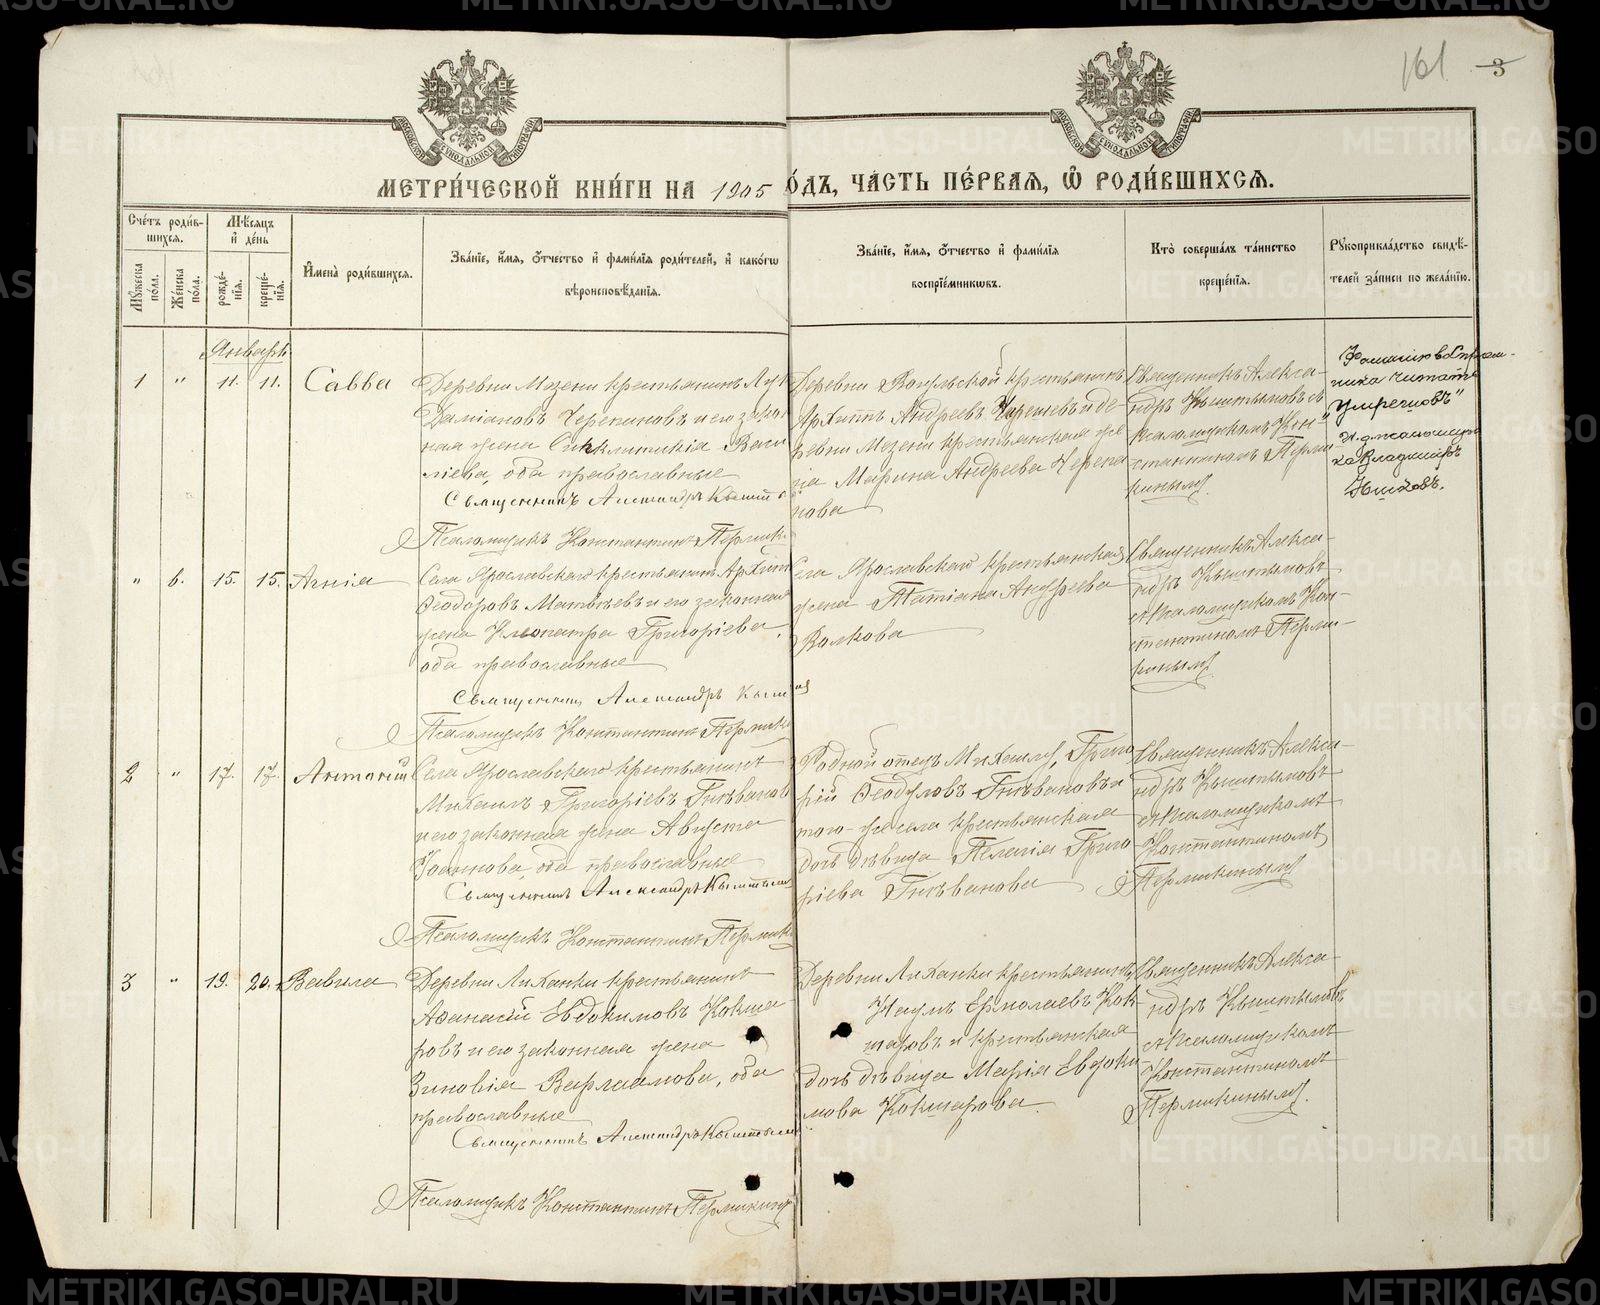 161 3
МЕТРИ́ЧЕСКОЙ КНИ́ГИ НА 1905 ГО́ДЪ, ЧА́СТЬ ПЕ́РВАЯ, Ѽ РОДИ́ВШИХСЯ.
Сче́тъ роди́вшихся.
Мꙋжеска пола.
Же́нска пола.
Мѣ́сяцъ и҆ де́нь
рожде́нїя.
креще́нїя.
И҆мена̀ роди́вшихся.
Зва́нїе, и҆́мя, ѻ҆́тчество и҆ фами́лїя роди́телей, и҆ како́гѡ
вѣроисповѣ́данїя.
Зва́нїе, и҆́мя, ѻ҆́тчество и҆ фами́лїя
воспрїе́мникѡвъ.
Кто̀ соверша́лъ та́инство
креще́нїя.
Рꙋкоприкла́дство свидѣ́-
телей за́писи по жела́нїю.
Январь
1 " 11. 11. Савва
Деревни Мезени крестьянинъ Лук
Даміановъ Черепановъ и его закон
ная жена Синклитикія Васи
ліева, оба православные
Священникъ Александръ Кышт
Псаломщикъ Константинъ Пермик
Деревни Вогульской крестьянинъ
Архиппъ Андреевъ и де
ревни Мезени крестьянская же
на Марина Андреева Черепа
нова
Священникъ Алекса-
ндръ Кыштымовъ съ
псаломщикомъ Кон-
стантиномъ Перми
кинымъ.
читать
" 6. 15. 15. Агнія
Села Ярославскаго крестьянинъ Архипъ
Ѳеодоровъ Матвѣевъ и его законная
жена Клеопатра Григоріева,
оба православные
Священникъ Александръ Кышт
Псаломщикъ Константинъ Пермики
Села Ярославскаго крестьянская
жена Татіана Андреева
Волкова
Священникъ Алекса-
ндръ Кыштымовъ
съ псаломщикомъ Кон-
стантиномъ Перми-
кинымъ
2 " 17. 17. Антоній
Села Ярославскаго крестьянинъ
Михаилъ Григоріевъ Гнѣвановъ
и его законная жена Августа
Іоаннова, оба православные
Священникъ Александръ Кыштым
Псаломщикъ Константинъ Пермик
Родной отецъ Михаила, Григо
рій Ѳеодуловъ Гнѣвановъ и
того-же села крестьянская
дочь дѣвица Пелагія Григо
ріева Гнѣванова
Священникъ Алекса-
ндръ Кыштымовъ
съ псаломщикомъ
Константиномъ
Пермикинымъ
3 " 19. 20. Вавила
Деревни Ляханки крестьянинъ
Аѳанасій Евдокимовъ Кокша
ровъ и его законная жена
Зиновія Варлаамова, оба
православные
Священникъ Александръ Кыштым
Псаломщикъ Константинъ Пермикинъ
Деревни Ляханки крестьянинъ
Наумъ Ермолаевъ Кок
шаровъ и крестьянская
дочь дѣвица Марія Евдоки
мова Кокшарова
Священникъ Алекса-
ндръ Кыштымовъ
съ псаломщикомъ
Константиномъ
Пермикинымъ.
METRIKI.GASO-URAL.RU